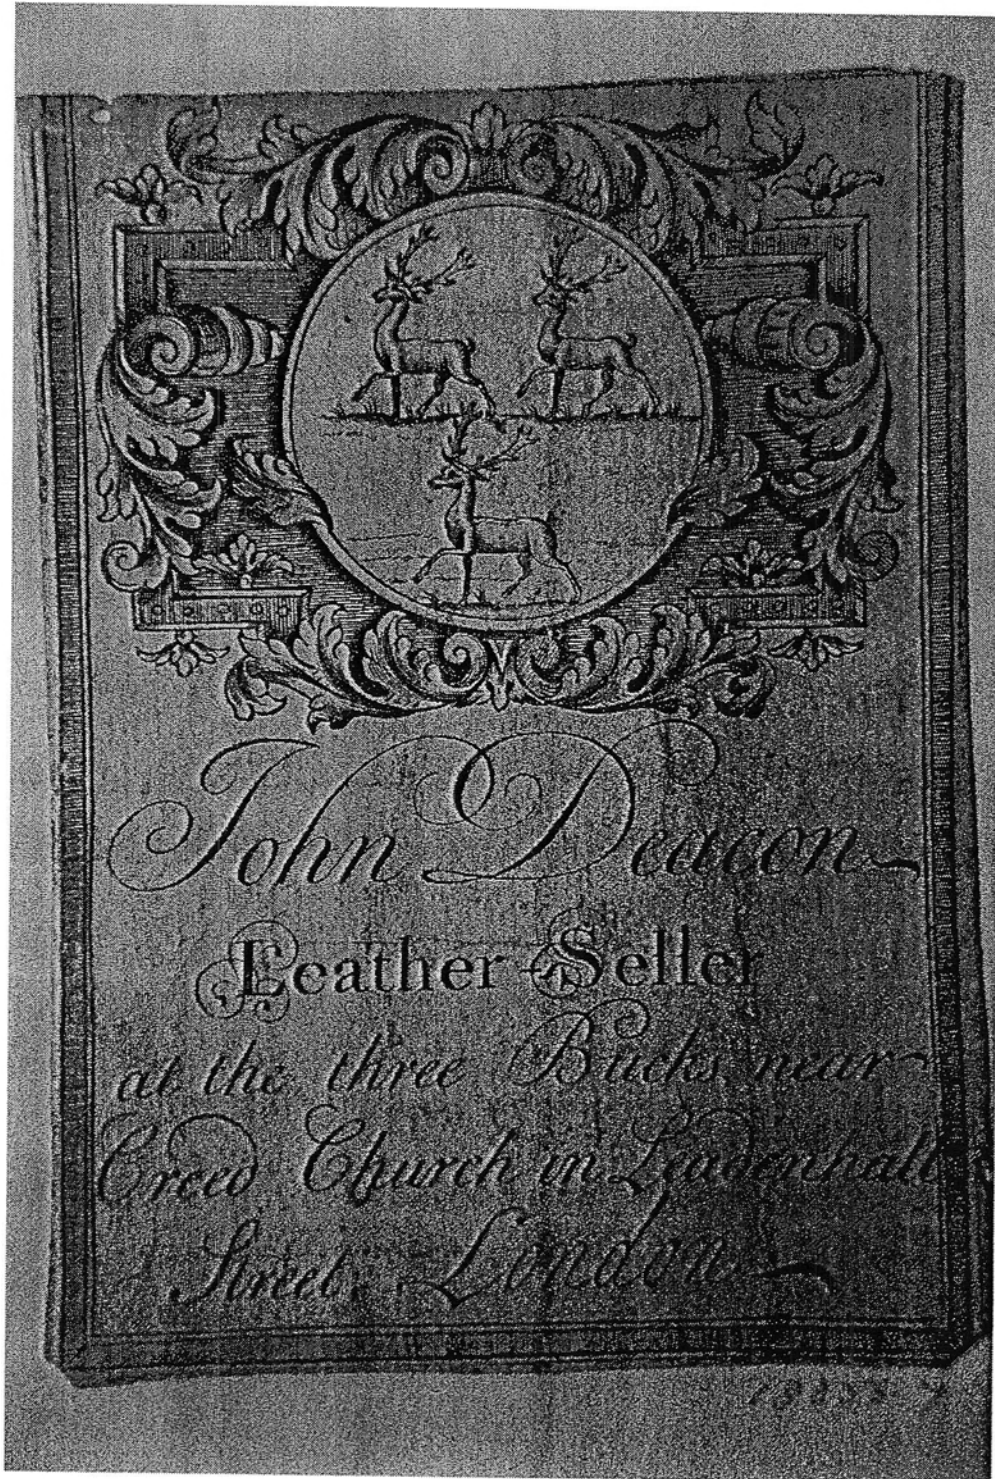 John Deacon
Leather-Seller
at the three Bucks near
Creed Church in Leadenhall
Street, London